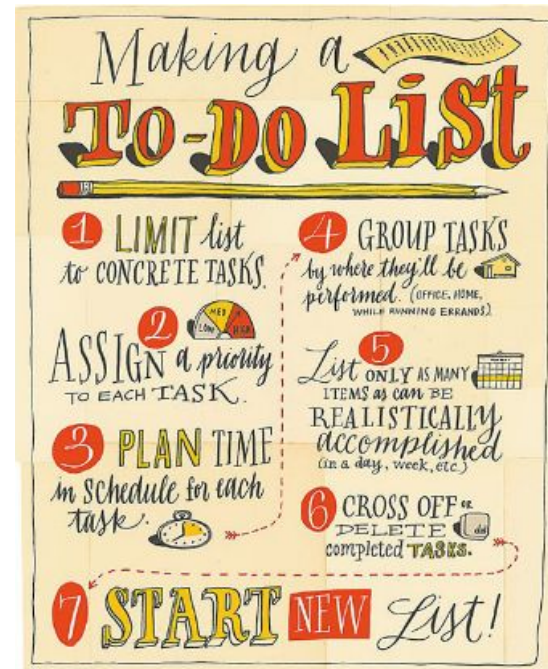 Making a
TO-DO LiST
1 LIMIT list
to CONCRETE TASKS.
2 LOW MED HIGH
ASSIGN a priority
TO EACH TASK.
3 PLAN TIME
in schedule for each
task.
4 GROUP TASKS
by where they'll be
performed. (OFFICE, HOME,
WHILE RUNNING ERRANDS)
5
List ONLY AS MANY
ITEMS as can BE
REALISTICALLY
accomplished
(in a day, week, etc.)
6 CROSS OFF or
DELETE del
completed TASKS.
7 START NEW List!